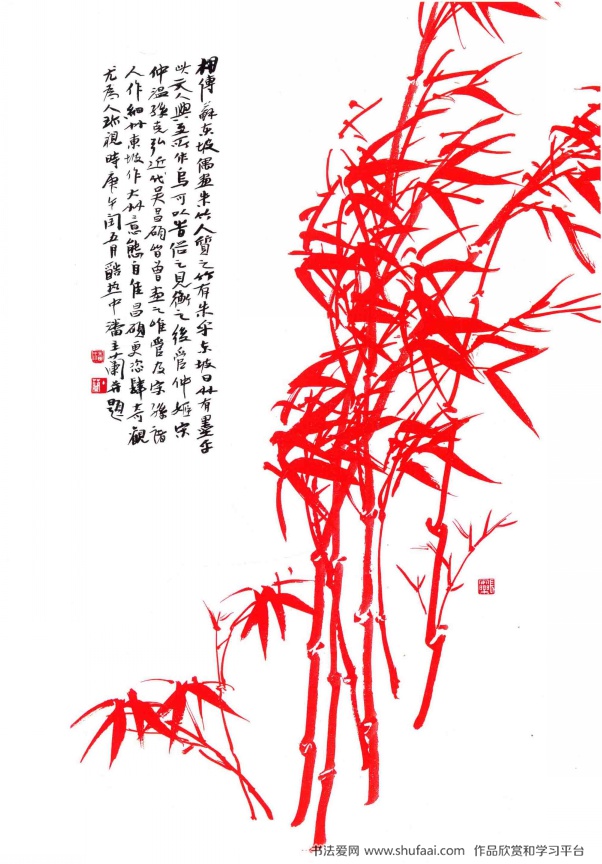 相傳蘇東坡偶畫朱竹人質之竹有朱乎東坡曰竹有墨乎
此天人與立所作烏可以昔俗之見衡之後管仲姬宋
仲温孫克弘近代吴昌碩皆曾畫之唯管及宋孫諸
人作細竹東坡作大竹意態自佳昌碩更恣肆奇觀
尤爲人珍視時庚午閏五月酷热中潘主蘭并題
书法爱网 www.shufaai.com 作品欣赏和学习平台